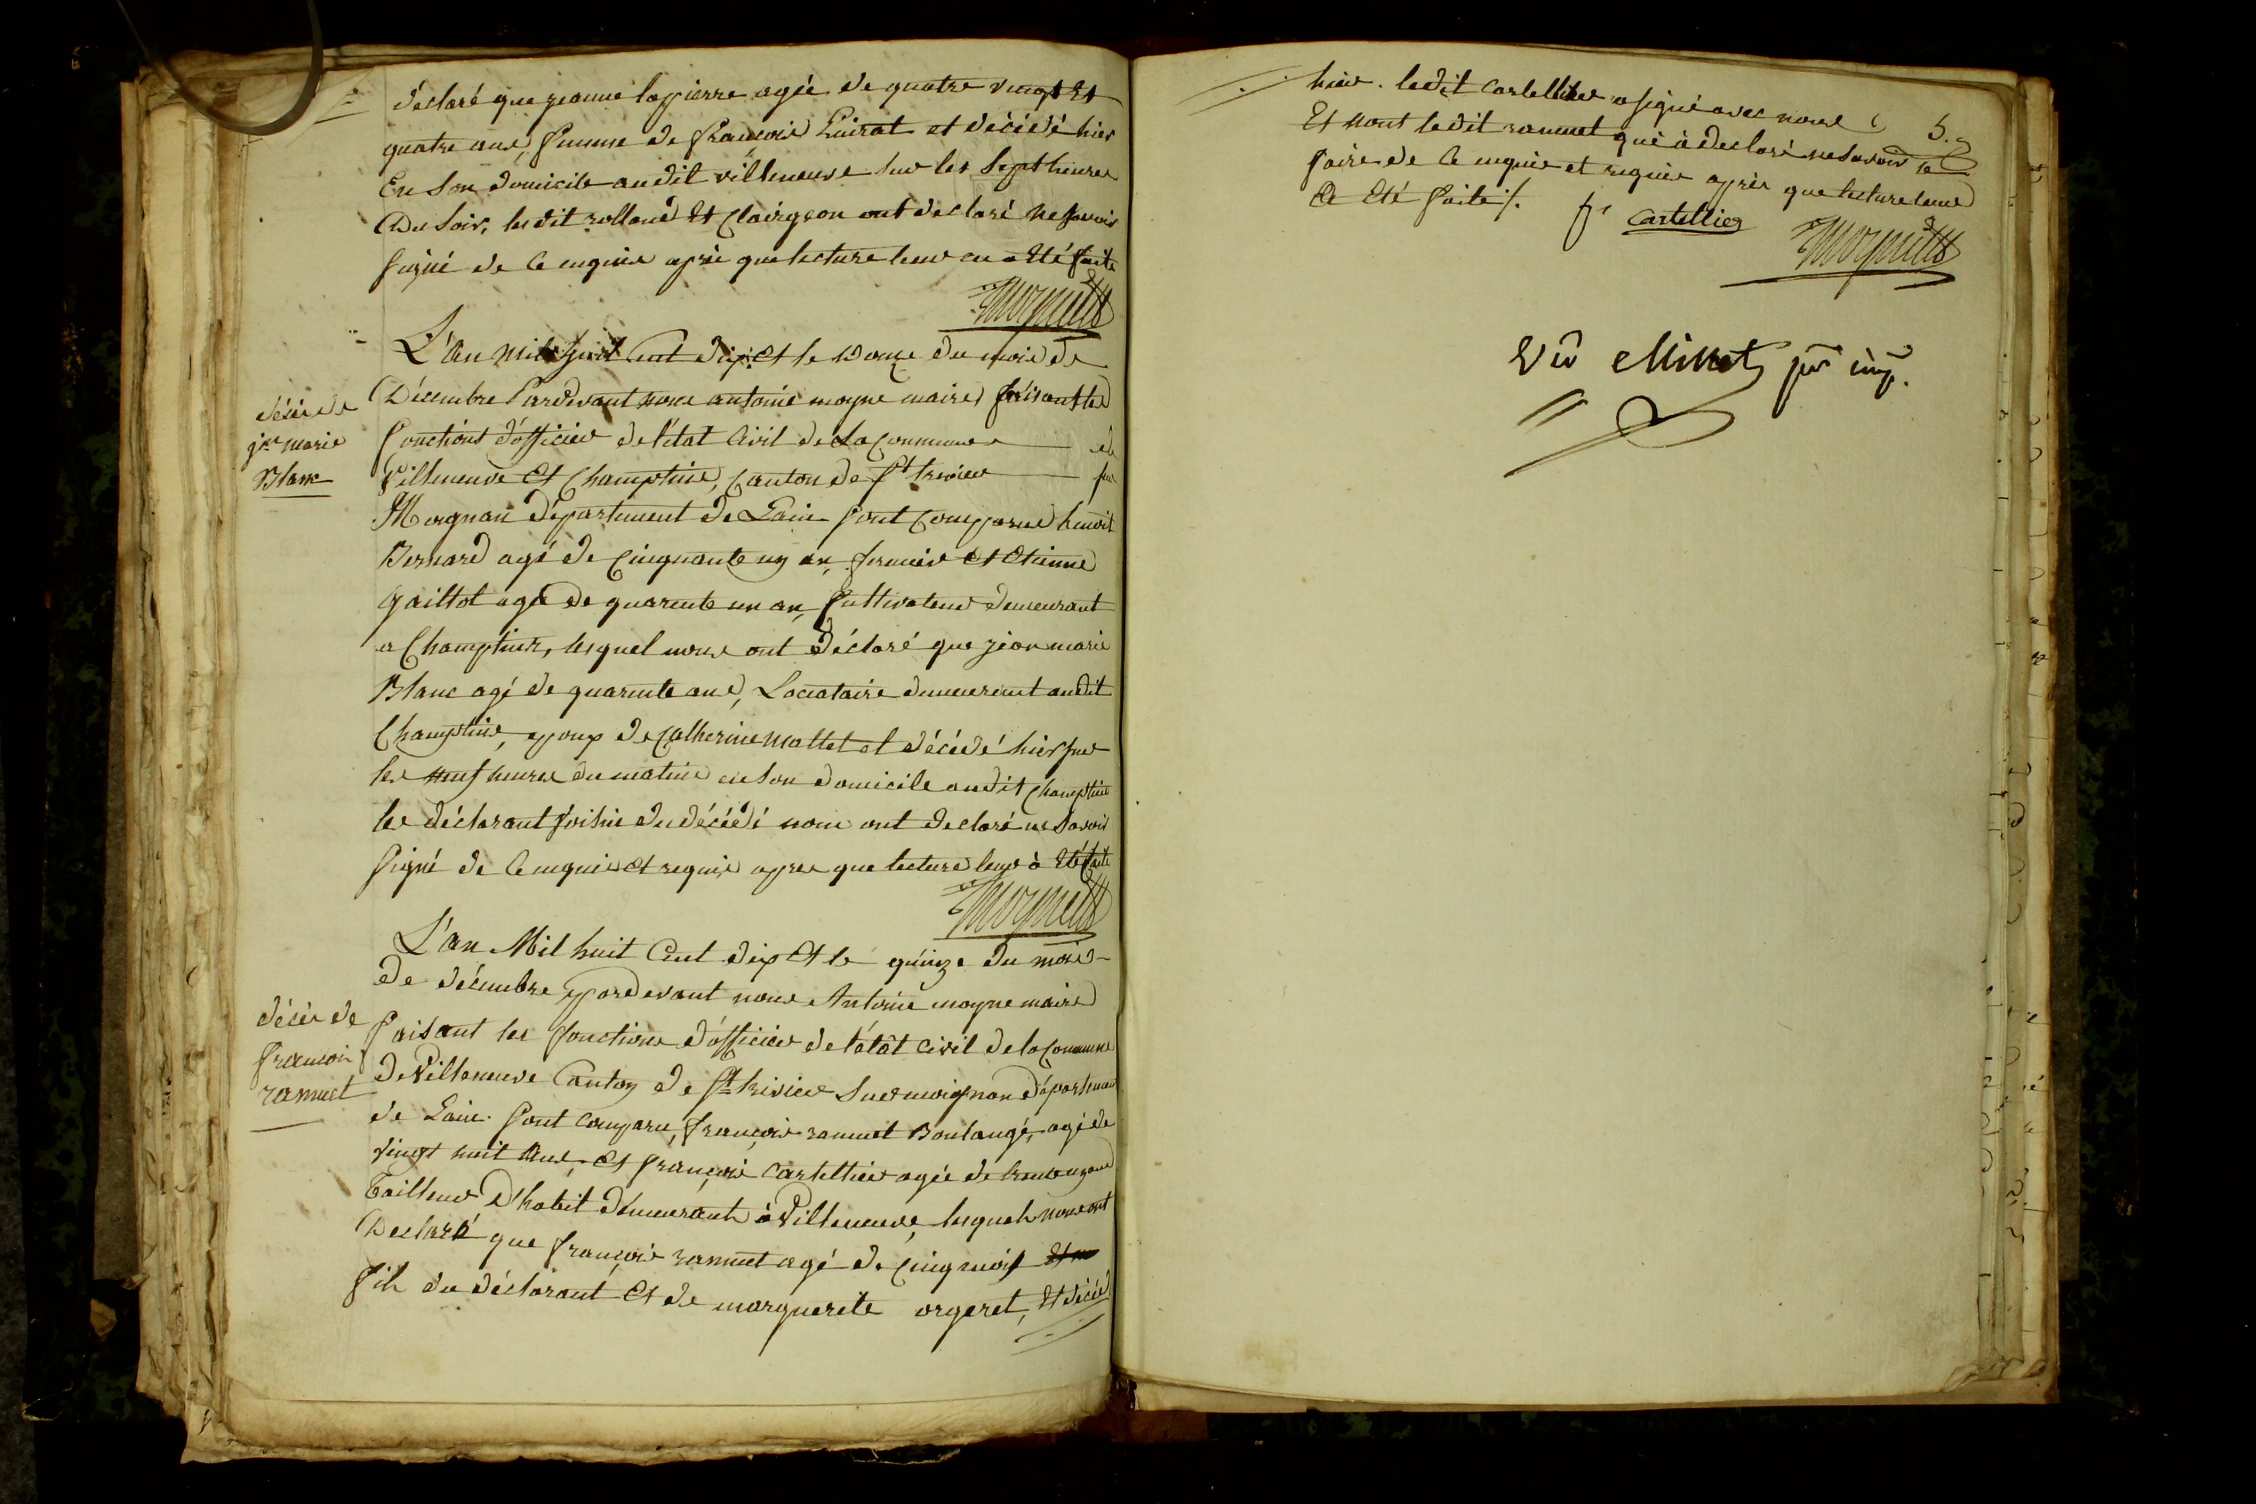 déclaré que jeanne lapierre agée de quatre vingt Et
quatre ans, femme de françois Luirat et décédé hier
En Son domicile audit villeneuve sur les Sept heures
Du Soir, lesdit rolland Et Clairgeon ont declaré ne savoir
signé de ce enquis après que lecture leur en a Eté faite
L'an Mil huit cent dix Et le Donze du mois de
Décembre Pardevant nous antoine moyne maire faisant les
fonctions d'officier de l'état Civil de La Commune de
Villeneuve Et Champtein, Canton de St trivier sur
Mognan département de Lain sont comparus benoit
Bernard agé de Cinquante un an, fermier Et Etienne
Gaillot agé de quarente un an, Cultivateur demeurant
a Champtein, lesquel nous ont déclaré que jean marie
Blanc agé de quarente ans, Locataire demeurant audit
Champtein, epoux de Catherine Mottet et décédé hier sur
les neuf heures du matin en Son domicile audit Champtein
les déclarant voisin du décédé nous ont declaré ne Savoir
signé de ce enquis et requis apres que lecture leur à Eté faite
décès de
jn marie
Blanc
L'an Mil huit Cent dix Et le quinze du mois
De décembre pardevant nous Antoine moyne maire
faisant les fonctions d'officier de l'état civil de la Commune
De Villeneuve Canton de St trivier Sur moignan département
de Lain. Sont comparu, françois rammet Boulangé, agé de
vingt huit Ans, Et françois Cartellier agée de trente un ans
Tailleur D'habit demeurant à Villeneuve, lesquels nous ont
Declaré que françois rammet agé de Cinq mois
fils du déclarant Et de marguerite orgeret, Et décédé
décès de
françois
rammet
hier. ledit Cartellier a signé avec nous
Et nont ledit rammet qui à declaré ne Savoir le
faire de ce enquis et requis après que lecture leurs
a Eté faite ./.
fs Cartellier
Vu Millet jer imp.